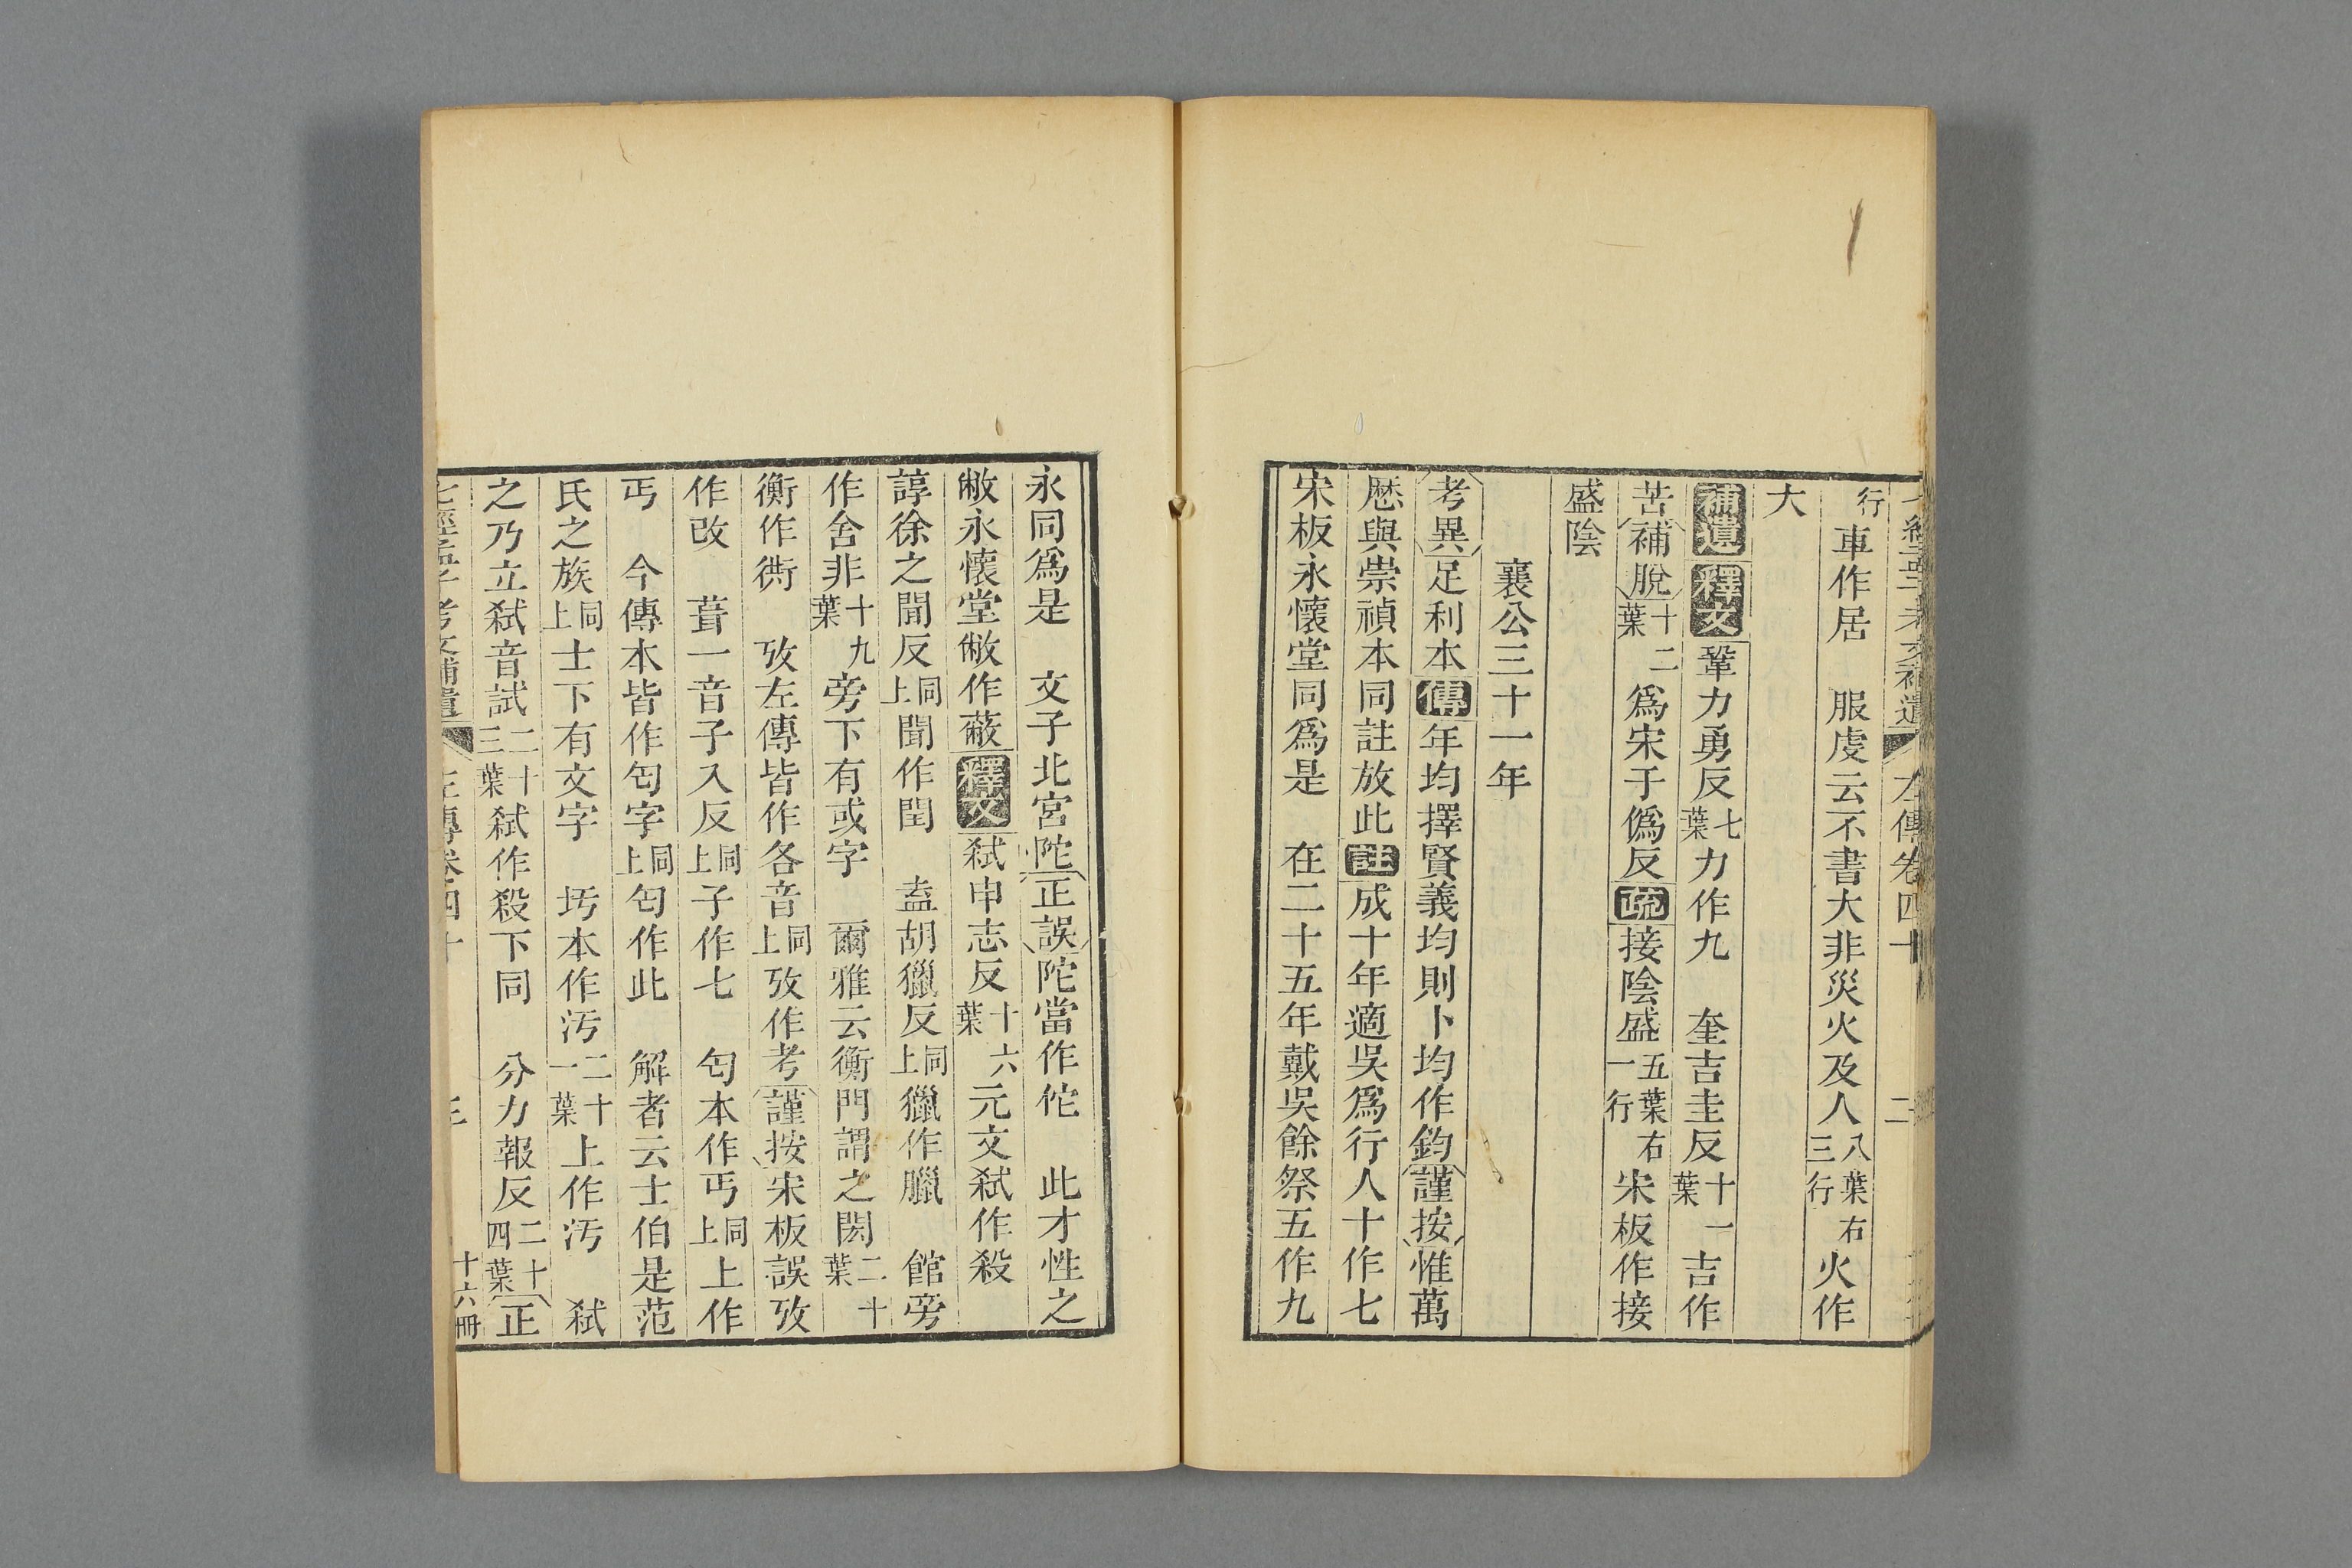 七經孟子考文補遺 左傳卷四十 二
行車作居 服虔云不書大非災火及人八葉右三行火作
大
補遺 釋文 鞏力勇反七葉力作九 奎吉圭反十一葉吉作
苦補脫十二葉爲宋于僞反 疏 接陰盛五葉右一行宋板作接
盛陰
襄公三十一年
考異 足利本 傳 年均擇賢義均則卜均作鈞謹按惟萬
厯與崇禎本同註放此 註 成十年適吳爲行人十作七
宋板永懷堂同爲是 在二十五年戴吳餘祭五作九
永同爲是 文子北宮陀正誤陀當作佗 此才性之
敝永懷堂敝作蔽 釋文 弑申志反十六葉元文弑作殺
諄徐之閏反同上聞作閏 盍胡獵反同上獵作臘 館旁
作舍非十九葉旁下有或字 爾雅云衡門謂之閎二十葉
衡作衖 攷左傳皆作各音同上攷作考謹按宋板誤攷
作改 葺一音子入反同上子作七 匄本作丐同上上作
丐 今傳本皆作匄字同上匄作此 解者云士伯是范
氏之族同上士下有文字 圬本作汚二十一葉上作汚 弑
之乃立弑音試二十三葉弑作殺下同 分力報反二十四葉正
七經孟子考文補遺 左傳卷四十 三 十六冊